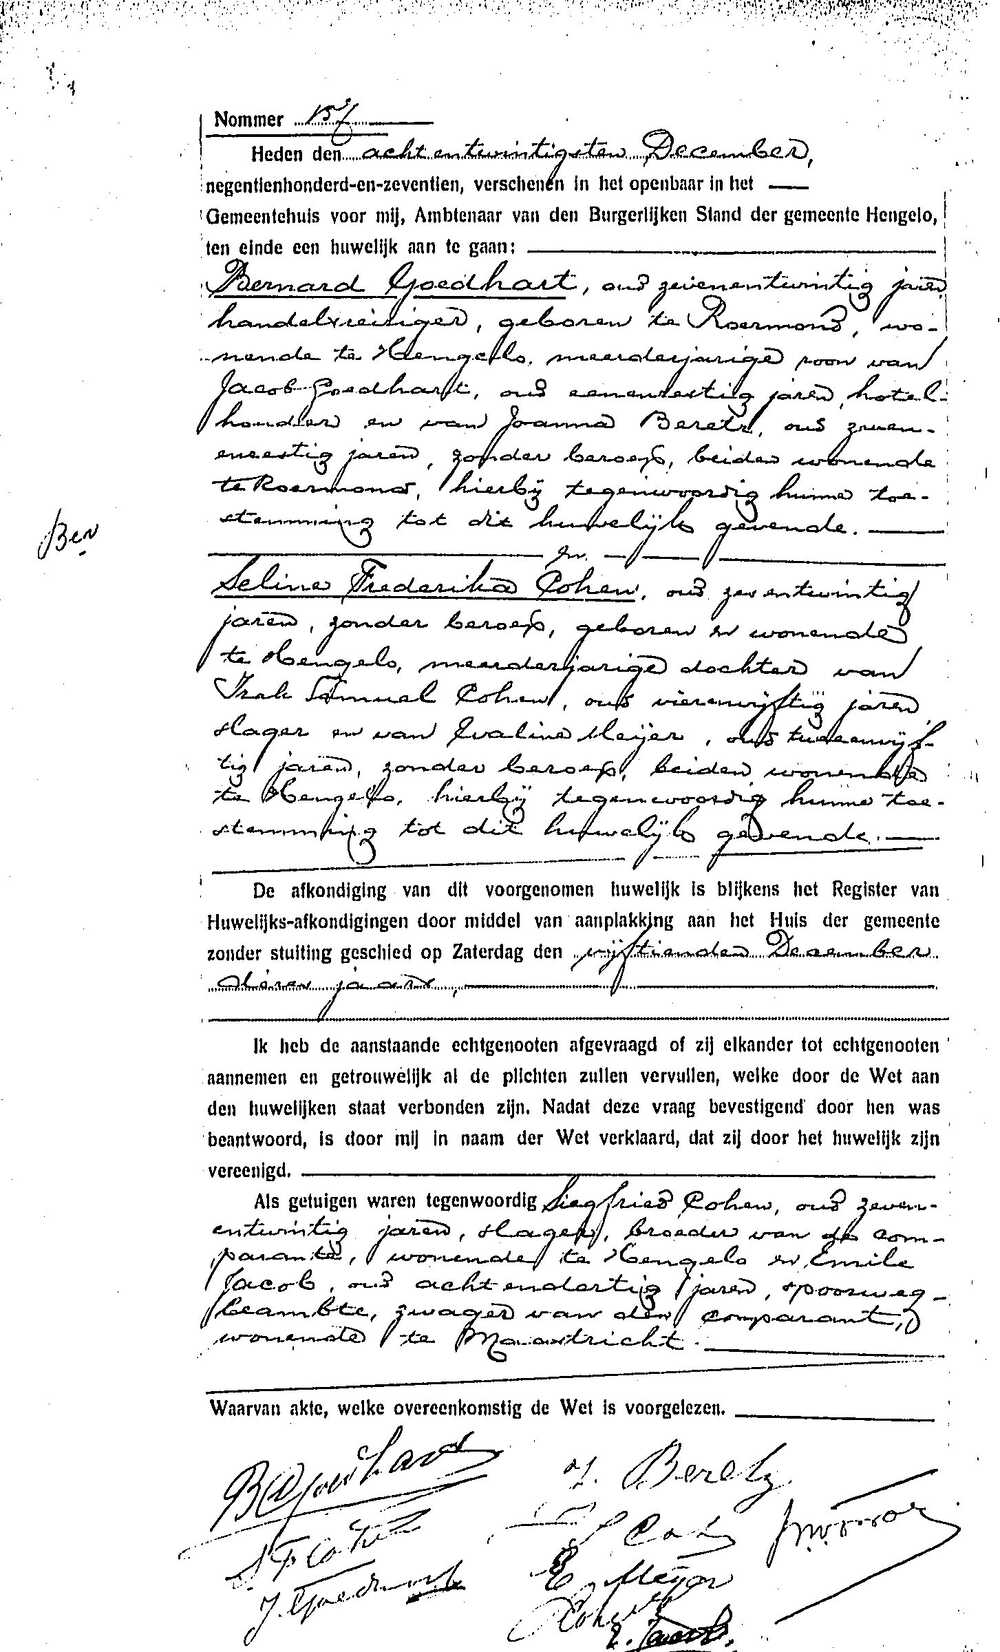 Nommer 157
Heden den achtentwintigsten December,
negentienhonderd-en-zeventien, verschenen in het openbaar in het
Gemeentehuis voor mij, Ambtenaar van den Burgerlijken Stand der gemeente Hengelo,
ten einde een huwelijk aan te gaan:
Bernard Goedhart, oud zevenentwintig jaren
handelsreiziger, geboren te Roermond, wo-
nende te Hengelo, meerderjarige zoon van
Jacob Goedhart, oud eenenzestig jaren, hotel-
houder en van Joanna Beretz, oud zeven-
enzestig jaren, zonder beroep, beiden wonende
te Roermond, hierbij tegenwoordig hunne toe-
stemming tot dit huwelijk gevende.
Ben
En
Seline Frederika Cohen, oud zeventwintig
jaren, zonder beroep, geboren en wonende
te Hengelo, meerderjarige dochter van
Izak Samuel Cohen, oud vierenvijftig jaren
slager en van Evaline Meijer, oud tweeenvijf-
tig jaren, zonder beroep, beiden wonende
te Hengelo, hierbij tegenwoordig hunne toe-
stemming tot dit huwelijk gevende.
De afkondiging van dit voorgenomen huwelijk is blijkens het Register van
Huwelijks-afkondigingen door middel van aanplakking aan het Huis der gemeente
zonder stuiting geschied op Zaterdag den vijftienden December
dezes jaars,
Ik heb de aanstaande echtgenooten afgevraagd of zij elkander tot echtgenooten
aannemen en getrouwelijk al de plichten zullen vervullen, welke door de Wet aan
den huwelijken staat verbonden zijn. Nadat deze vraag bevestigend door hen was
beantwoord, is door mij in naam der Wet verklaard, dat zij door het huwelijk zijn
vereenigd.
Als getuigen waren tegenwoordig Siegfried Cohen, oud zeven-
entwintig jaren, slager, broeder van de com-
parante, wonende te Hengelo en Emile
Jacob, oud achtendertig jaren, spoorweg-
beambte, zwager van den comparant,
wonende te Maastricht.
Waarvan akte, welke overeenkomstig de Wet is voorgelezen.
B Goedhart
J. Beretz
S F Cohen
J. Goedhart
E Meijer
Cohen
E. Jacob.